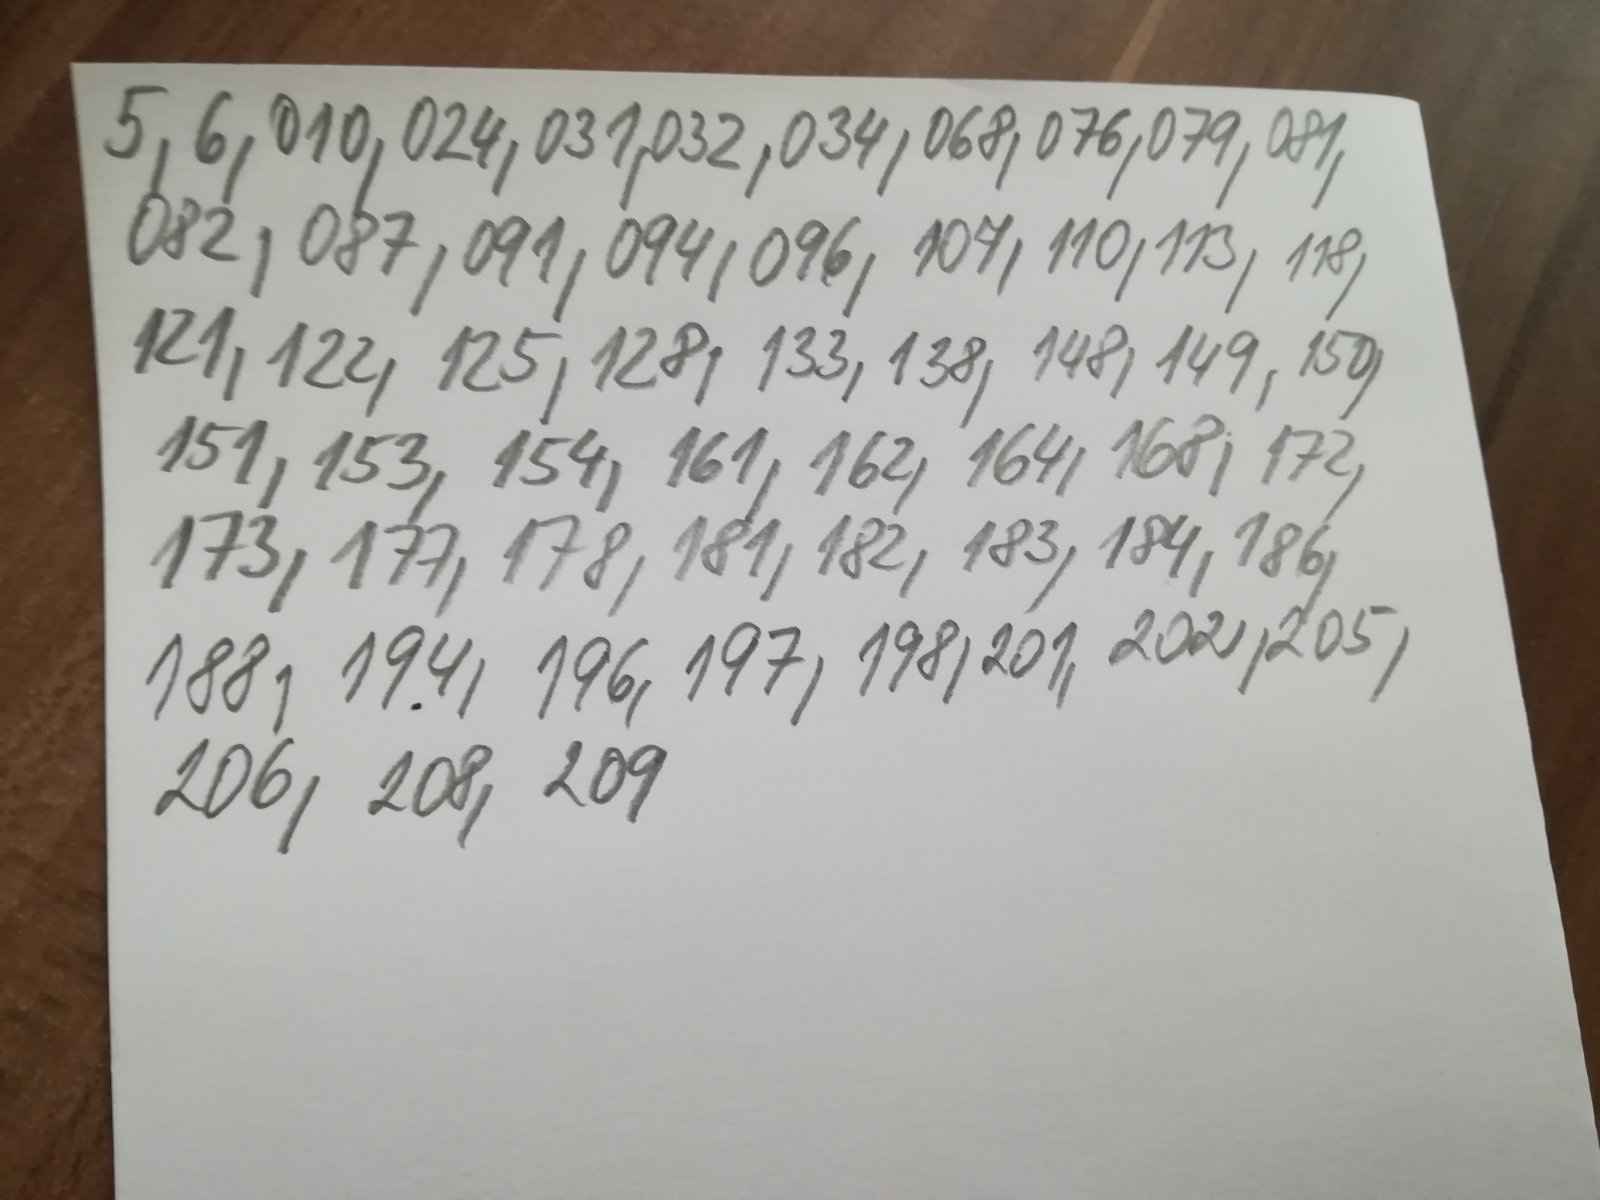 5, 6, 010, 024, 031, 032, 034, 068, 076, 079, 081,
082, 087, 091, 094, 096, 107, 110, 113, 118,
121, 122, 125, 128, 133, 138, 148, 149, 150,
151, 153, 154, 161, 162, 164, 168, 172,
173, 177, 178, 181, 182, 183, 184, 186,
188, 194, 196, 197, 198, 201, 202, 205,
206, 208, 209